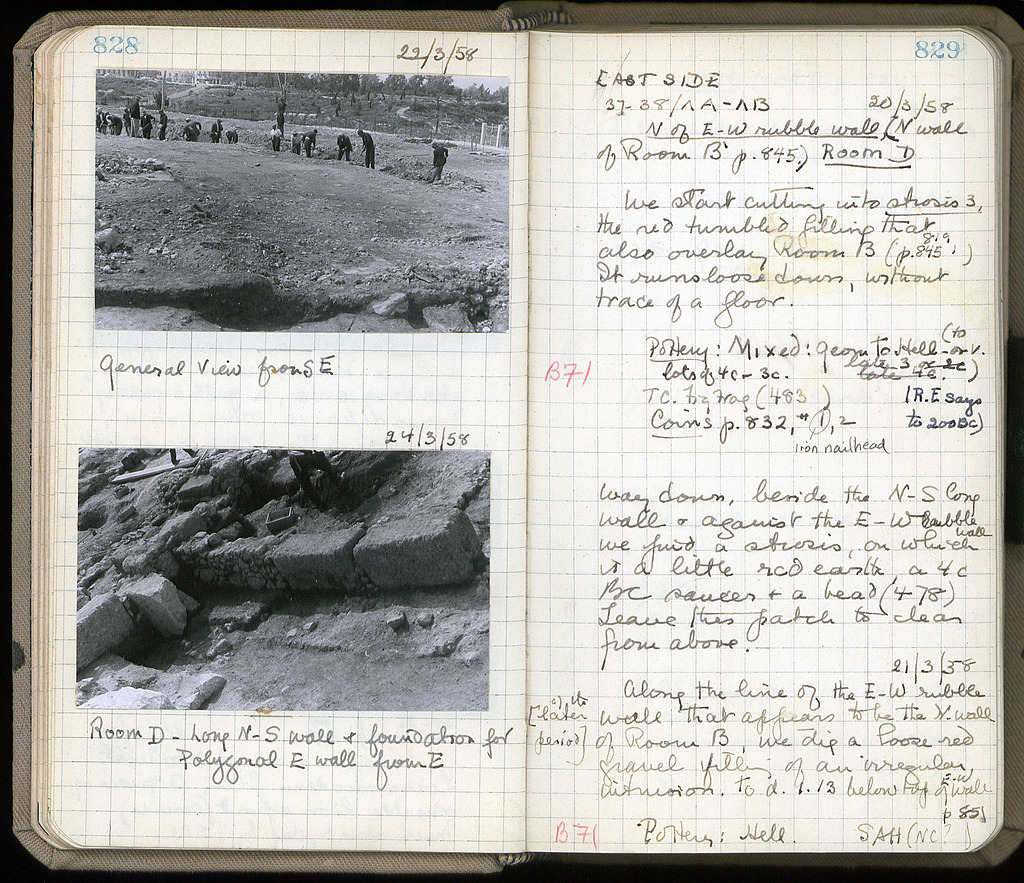 828
22/3/58
General View from SE
24/3/58
Room D - Long N-S wall + foundation for
Polygonal E wall from E
829
EAST SIDE
37-38/ΛA-ΛB 20/3/58
N of E-W rubble wall, (N wall
of Room B p.845) Room D
We start cutting into strosis 3,
the red tumbled filling that
819
also overlay Room B (p.845 )
It runs loose down, without
trace of a floor.
(to
Pottery: Mixed: Geom to Hell - or v.
late 3 or 2c
B71 lots of 4c - 3c. late 4c. )
TC. (483 ) (R.E says
Coins p.832, #1, 2 to 200 BC)
iron nailhead
Way down, beside the N-S long
wall + against the E-W rubble
wall
we find a strosis, on which
is a little red earth, a 4c
BC saucer + a bead (478)
Leave this patch to clear
from above.
21/3/58
Along the line of the E-W rubble
[later wall that appears to be the N. wall
period] of Room B, we dig a loose red
gravel filling of an irregular
intrusion. To d. 1.13 below top of E-W wall
p 851
B71 Pottery: Hell. SAH (NC?